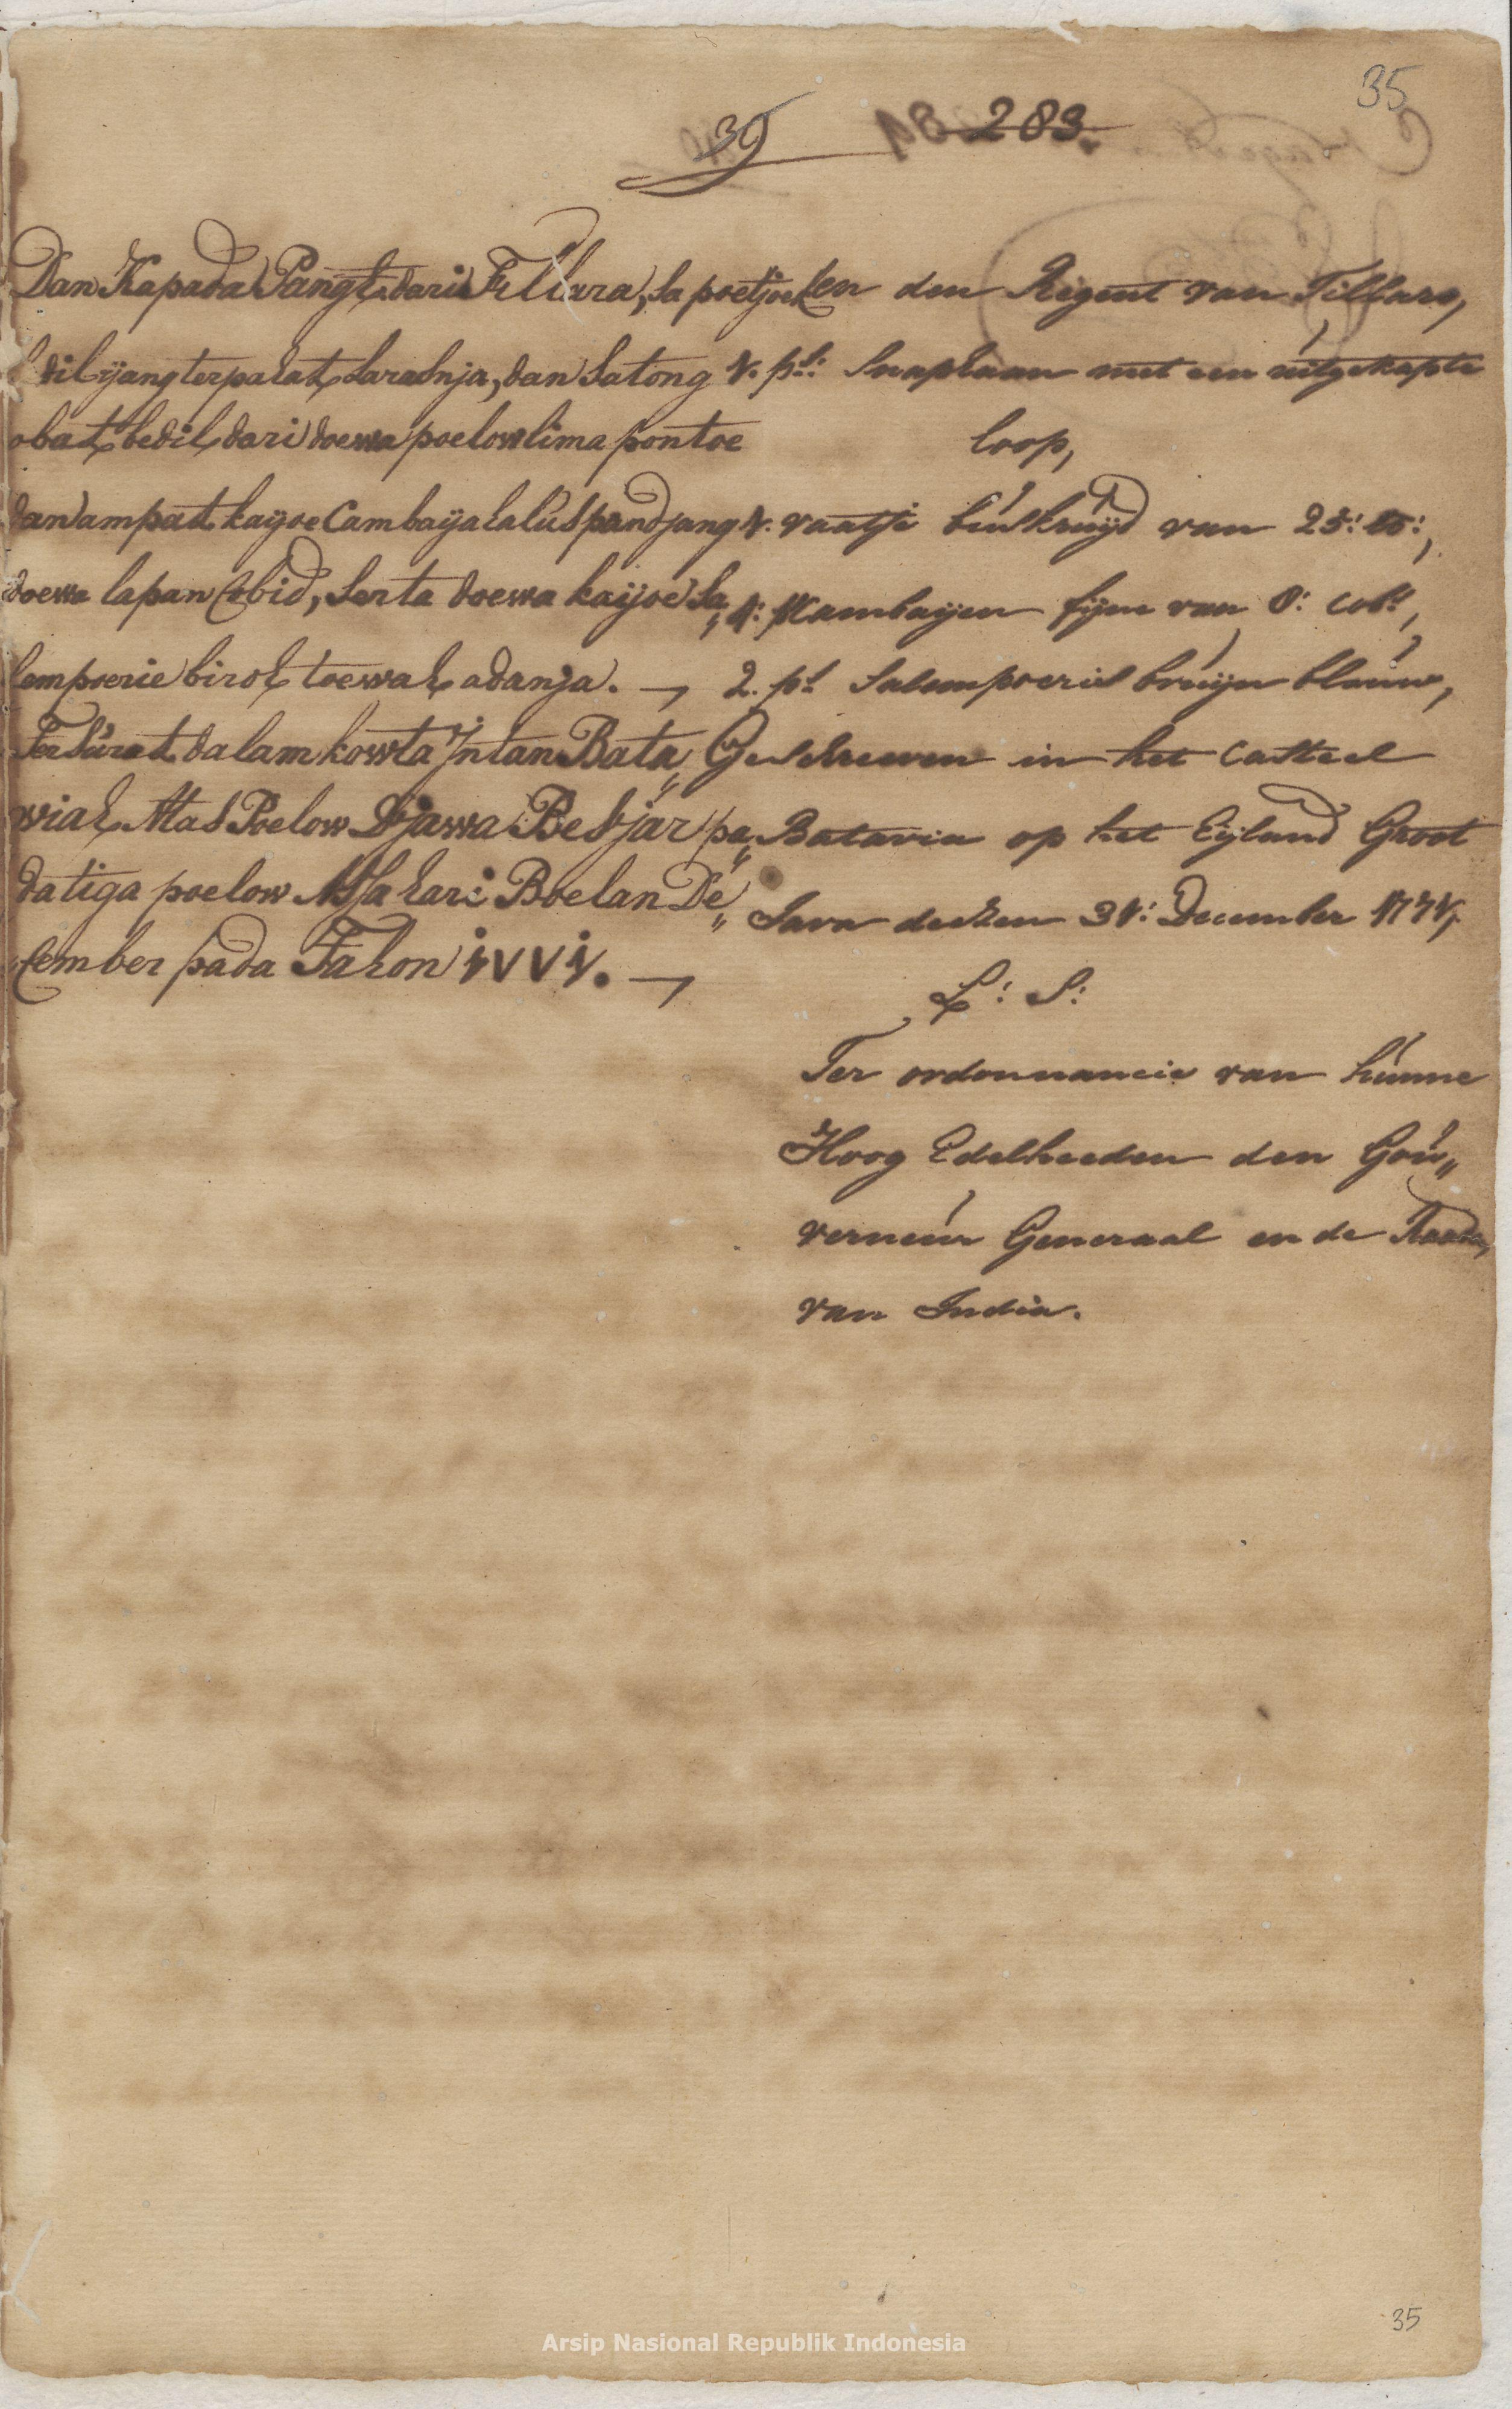 35
39
283.
Dan Kapada Pangt. dari Tillara, sa poetjoek
dil ijang terpahat larasnja, dan satong
obat bedil dari doewa poelow lima pontoe
dan ampat kayoe Cambaija halus pandjang
doewa lapan Cobid, serta doewa kayoe Sa„
lempoerie biroe toewah adanja. —
Tersurat dalam kowta Intan Bata„
wiah Atas Poelow Djawa Besjar pa„
da tiga poelow Assa hari Boelan De„
cember pada Tahon 1771. —
en den Regent van Tillaro,
1. ps: Snaphaan met een uitgekapte
loop,
1. vaatje buskruijd van 25: lb:,
4: Kambayen fijne van 8: cobs,
2. ps Salempoeris bruijn blauw,
Geschreeven in het Casteel
Batavia op het Eyland Groot
Java deesen 31: December 1771.
L: S:
Ter ordonnancie van hunne
Hoog Edelheeden den Gou„
verneur Generaal en de Raaden
van India.
35
Arsip Nasional Republik Indonesia